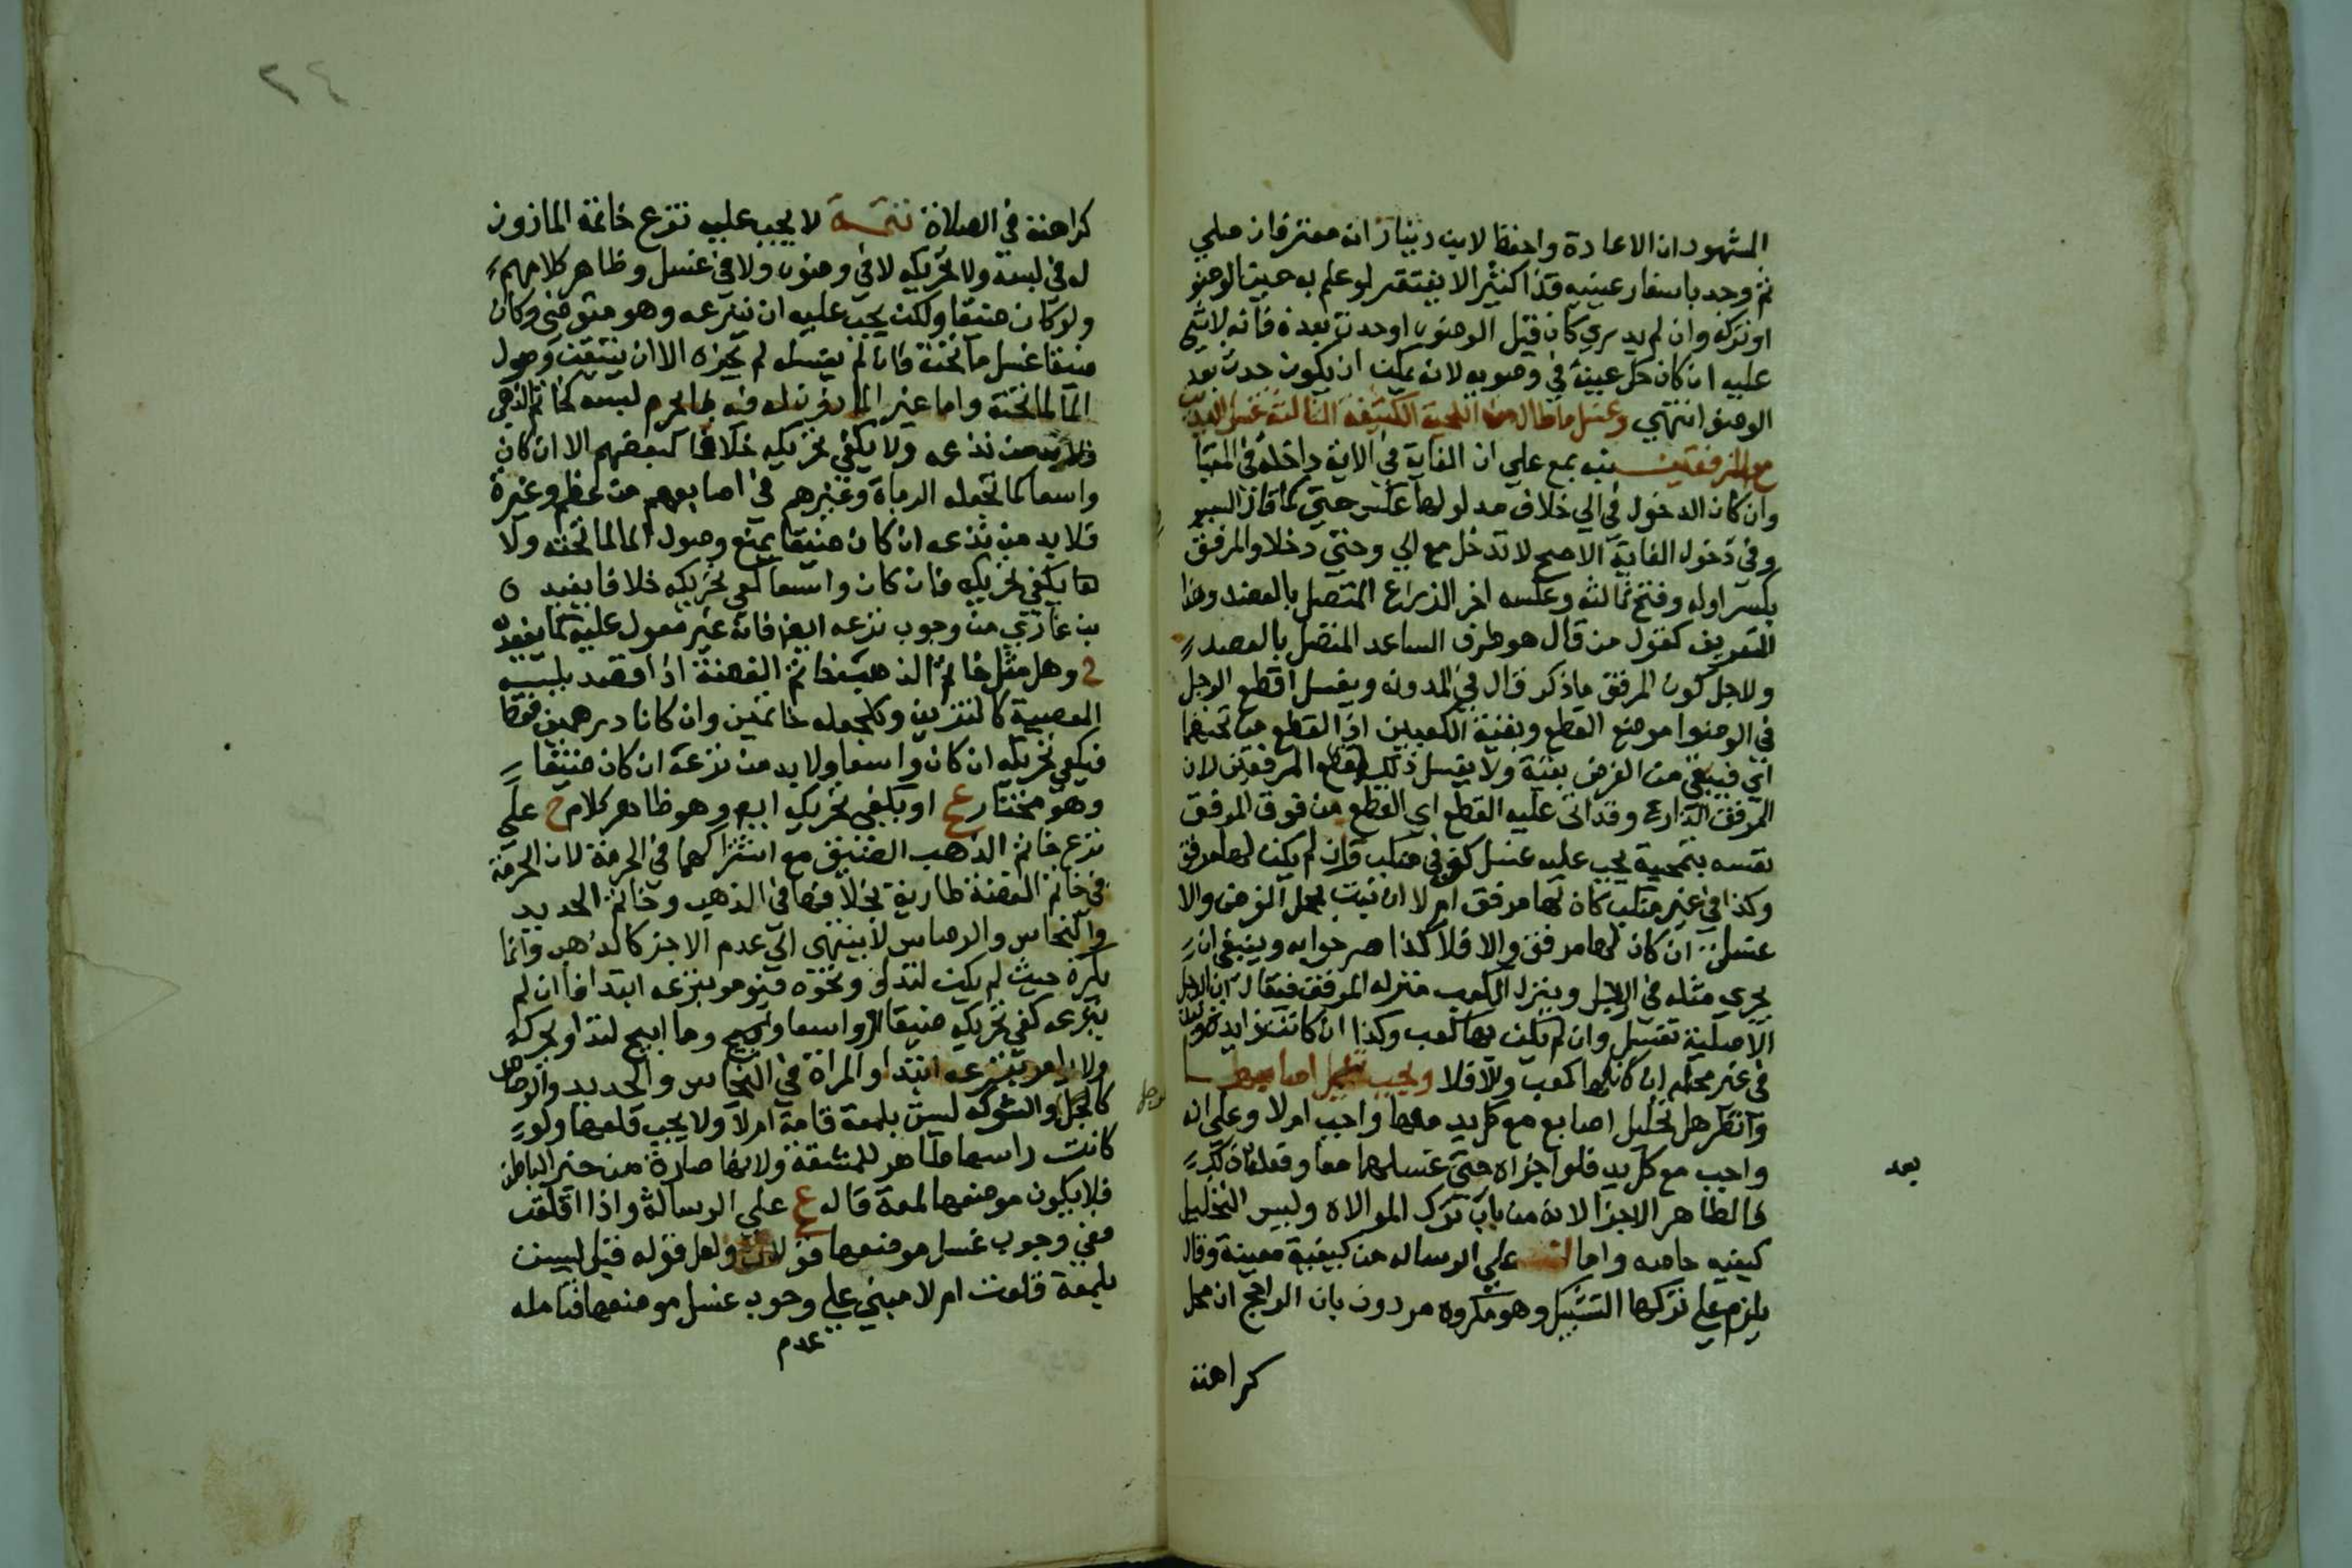 المشهور ان الاعادة واحفظ لابن دينار انه مفترقان صلي
ثم وجد باسفار عينيه قذا كثيرا لا يفتقر لو علم به حين الوضو
او تركه وان لم يدري كان قبل الوضوء او حدث بعده فانه لا شي
عليه ان كان حك عينيه في وضوبه لانه يمكن ان يكون حدث بعد
الوضو انتهي وغسل ما طال من اللحية الكثيفة الثالثة غسل اليدين
مع المرفقين نبه بمع علي ان الغاية في الاية داخلة في المغيا
وان كان الدخول في الي خلاف مدلولها عكس حتي كما قال السبر
وفي دخول الغاية الاصح لا تدخل مع الي وحتي دخلا والمرفق
بكسر اوله وفتح ثالثه وعكسه اخر الذراع المتصل بالعضد وهذا
التعريف كقول من قال هو طرف الساعد المتصل بالعضد
ولاجل كون المرفق ما ذكر قال في المدونه ويغسل اقطع الرجل
في الوضوا موضع القطع وبقية الكعبين اذ القطع من تحتهما
اي فيبقي من الفرض بقية ولا يغسل ذلك اقطع المرفقين لان
المرفق الذراع وقد اتي عليه القطع اي القطع من فوق المرفق
نفسه بتمحية يجب عليه غسل كف في منكب فان لم يكن لها مرفق
وكذا في غير منكب كان لها مرفق ام لا ان نبتت بمحل الفرض والا
غسلت ان كان لها مرفق والا فلا كذا صرحوابه وينبغي ان
يجري مثله في الرجل وينزل الكعب منزله المرفق فيقال ان الرجل
الاصلية تغسل وان لم يكن لها كعب وكذا ان كانت زايدة
في غير محله ان كان لها كعب والا فلا ويجب تخليل اصابعهما
وانظر هل تخليل اصابع مع كل يد معها واجب ام لا وعلي انه
واجب مع كل يد فلو اجزاه حتي غسلهما معا وفعل
فالظاهر الاجزا لانه من باب ترك الموالاه وليس التخليل
كيفيه خاصه واما علي الرساله من كيفية معينة وقال
يلزم علي تركها التشبيك وهو مكروه مردود بان الراجح ان محل
كراهته
بعد
٢٤
كراهته في الصلاة تتمة لا يجب عليه نزع خاتمة الماذون
له في لبسه ولا تحريكه لا في وضوء ولا في غسل وظاهر كلامهم
ولو كان ضيقا ولكن يجب عليه ان نزعه وهو متوضي وكان
ضيقا غسل ما تحته فان لم يغسله لم يجزه الا ان يتيقن وصول
الما لما تحته واما غير الماذون له فيه كالمحرم لبسه كخاتم الذهب
فلابد من نزعه ولا يكفي تحريكه خلافا لبعضهم الا ان كان
واسعا كما تجعله الرماة وغيرهم في اصابعهم من عظم وغيره
فلا بد من نزعه ان كان ضيقا يمنع وصول الما لما تحته ولا
ها يكفي تحريكه فان كان واسعا كفي تحريكه خلافا
بن غازي من وجوب نزعه ايضا فانه غير معول عليه كما
وهل مثل خاتم الذهب خاتم الفضة اذا قصد بلبسه
المعصية كالتزين وكلجعله خاتمين وان كانا درهمين فقط
فيكفي تحريكه ان كان واسعا ولا بد من نزعه ان كان ضيقا
وهو مختار عج او يكفي تحريك ايض وهو ظاهر كلام ح علي
نزع خاتم الذهب الضيق مع اشتراكهما في الحرمة لان الحرمة
في خاتم الفضة طارية بخلافها في الذهب وخاتم الحديد
والنحاس والرصاص لا ينتهى الي عدم الاجز كالذهب وانما
يكره حيث لم يكن لتداو ونحوه فيومر بنزعه ابتدا فان لم
ينزعه كفي تحريكه ضيقا او واسعا وما ابيح لتداو يحركه
ولا يومر بنزعه ابتدا والمراة في النحاس والحديد والرصاص
كالرجل والشوكه ليست بلمعة قامة ام لا ولا يجب قلعها ولو
كانت راسها ظاهر للمشقة ولانها صارة من حيز الباطن
فلا يكون موضعها لمعة قاله عج علي الرسالة واذا اقلعت
ففي وجوب غسل موضعها قولان ولعل قوله قبل ليست
بلمعة قلعت ام لا مبني علي وجوب غسل موضعها فتامله
عدم